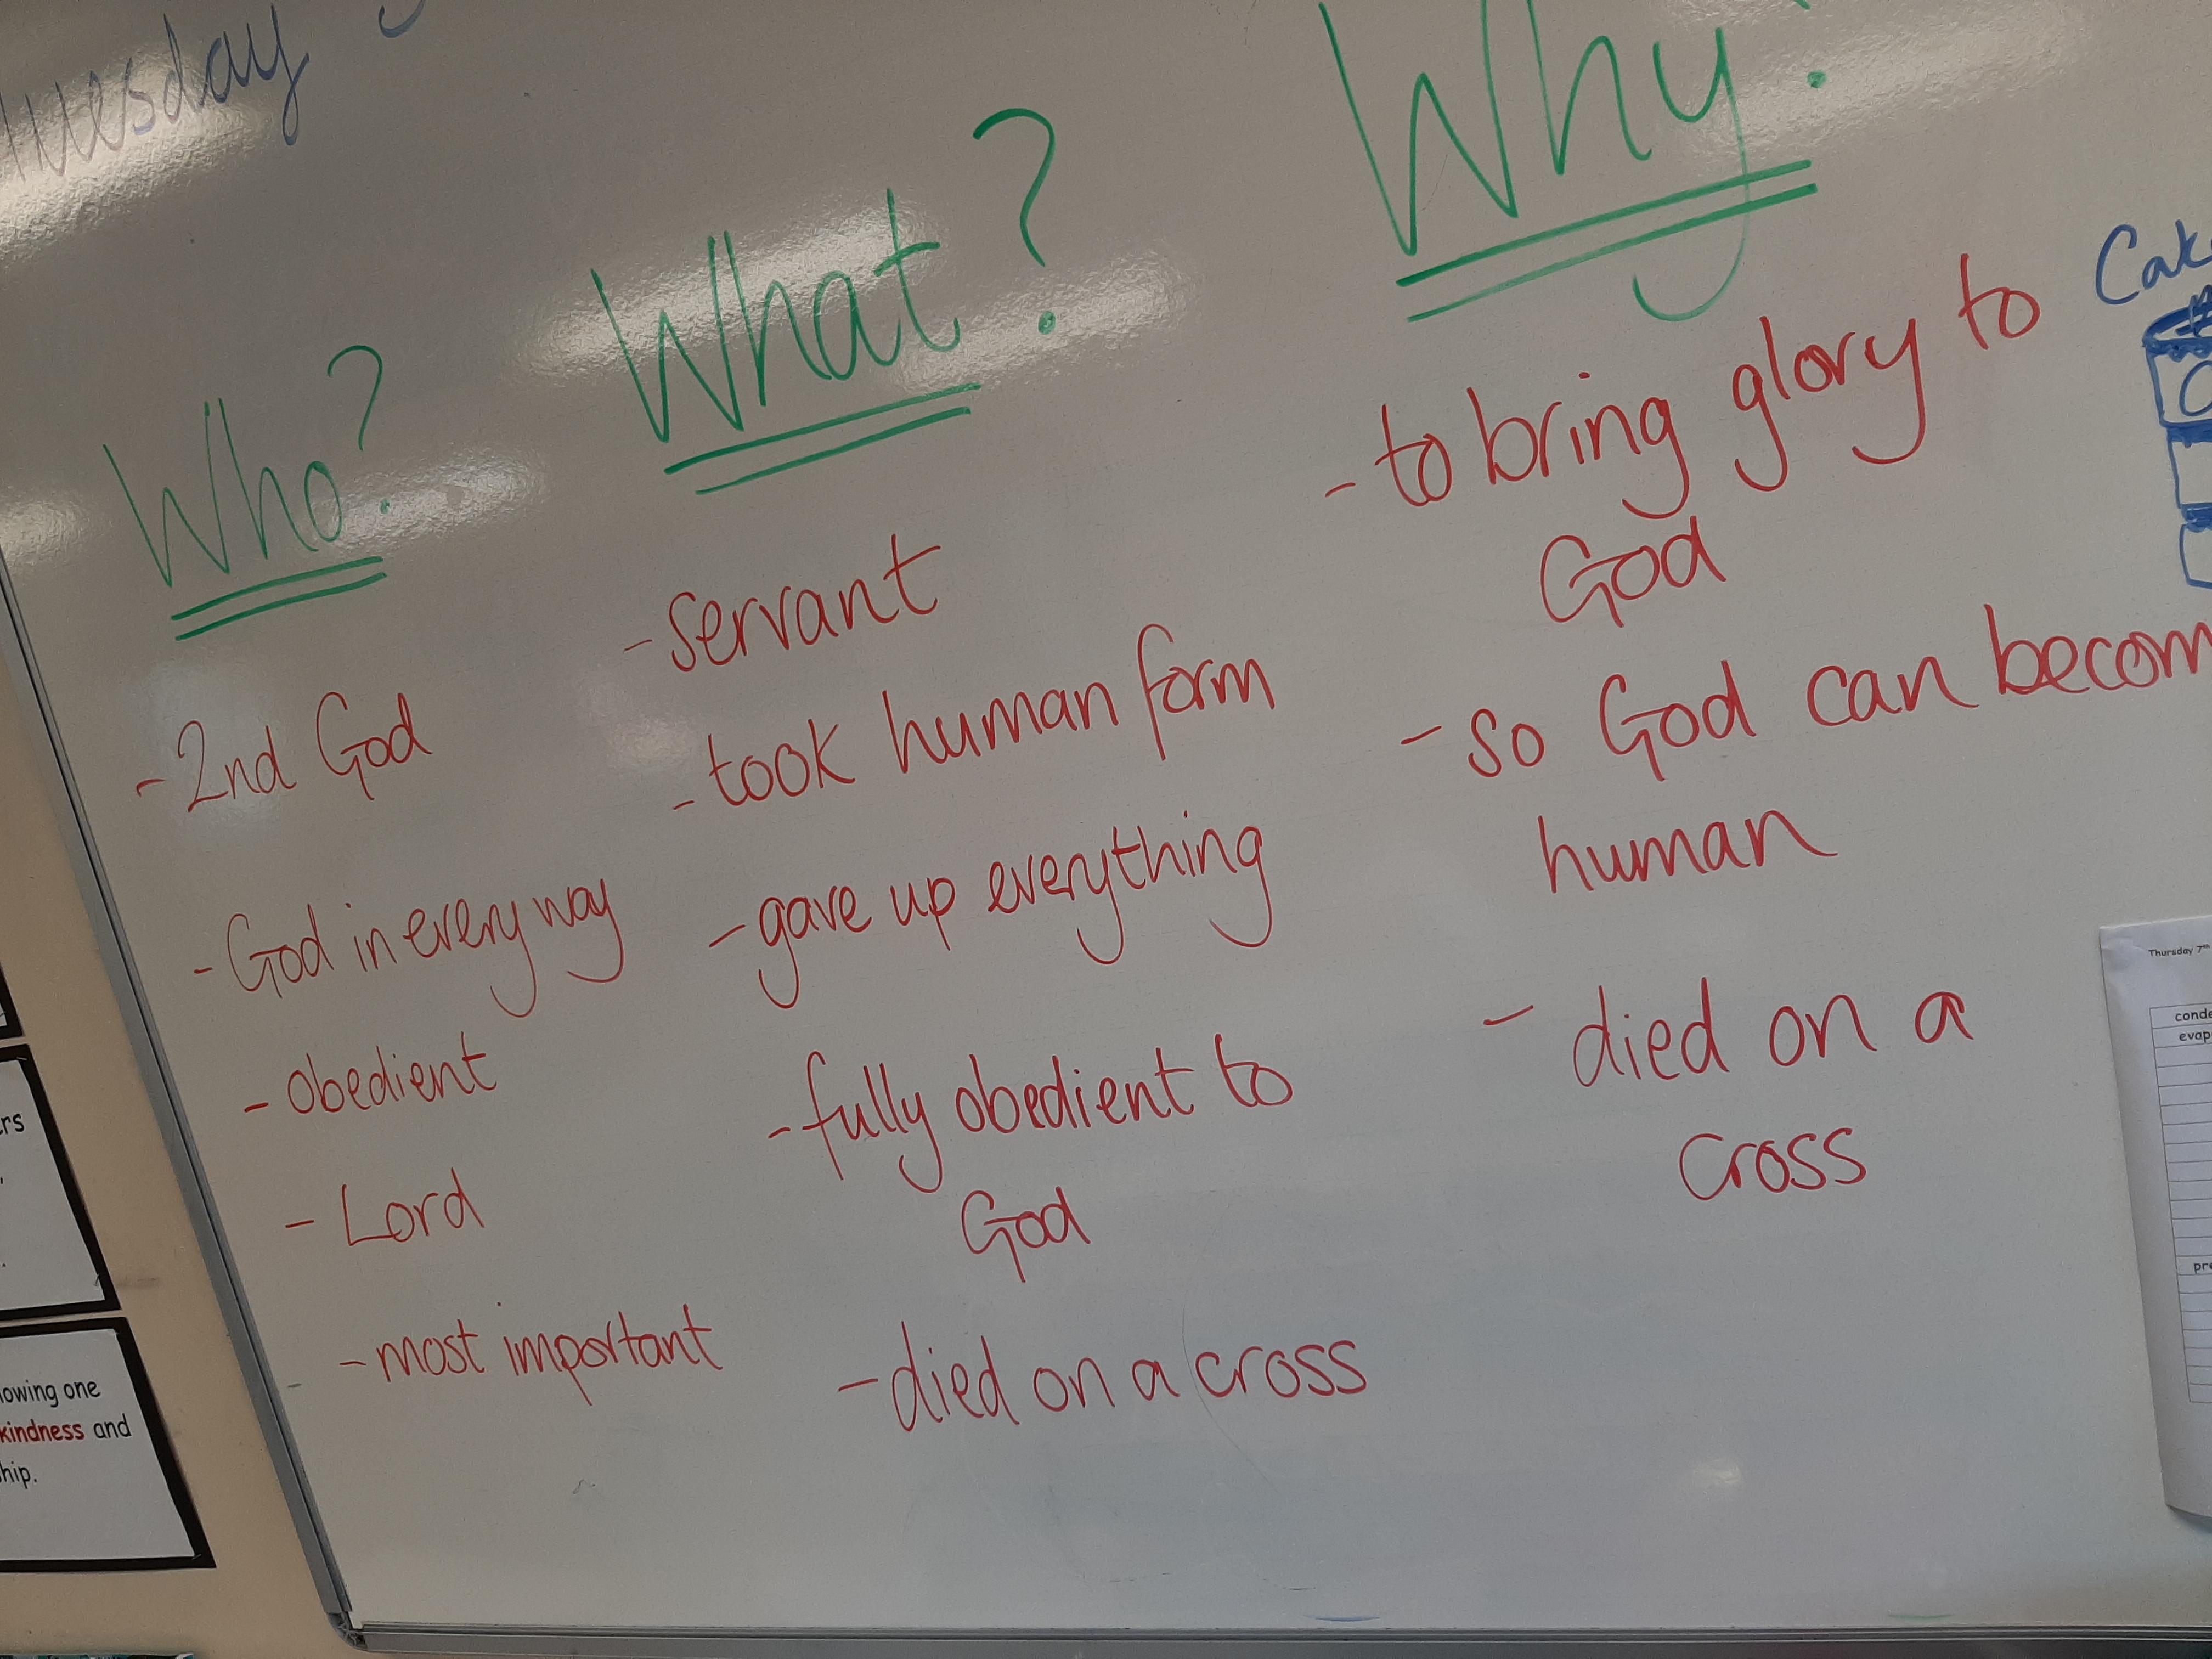 Tuesday
Who?
- 2nd God
- God in every way
- obedient
- Lord
- most important
What?
- servant
- took human form
- gave up everything
- fully obedient to
God
- died on a cross
Why?
- to bring glory to
God
- so God can
human
- died on a
cross
Thursday 7th
and
kindness and
one